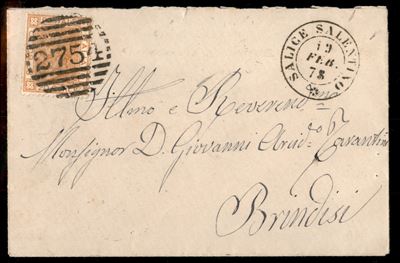 2754
SALICE SALENTINO
19
FEB
78
Illmo e Reverendmo
Monsignor D. Giovanni Arcid.o Tarantini
Brindisi